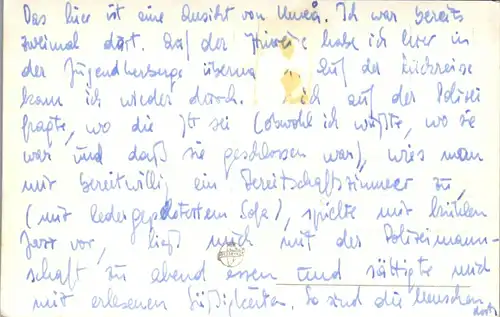 Das hier ist eine Ansicht von Umeå. Ich war bereits
zweimal dort. Auf der Hinreise habe ich hier in
der Jugendherberge überna Auf der Rückreise
kam ich wieder durch. ich auf der Polizei
fragte, wo die sei (obwohl ich wußte, wo sie
war und daß sie geschlossen war), wies man
mir bereitwillig ein Bereitschaftszimmer zu,
(mit ledergepolstertem Sofa), spielte mir
Jazz vor, ließ mich mit der Polizeimann-
schaft zu abend essen und sättigte mich
mit erlesenen Süßigkeiten. So sind die Menschen
dort.